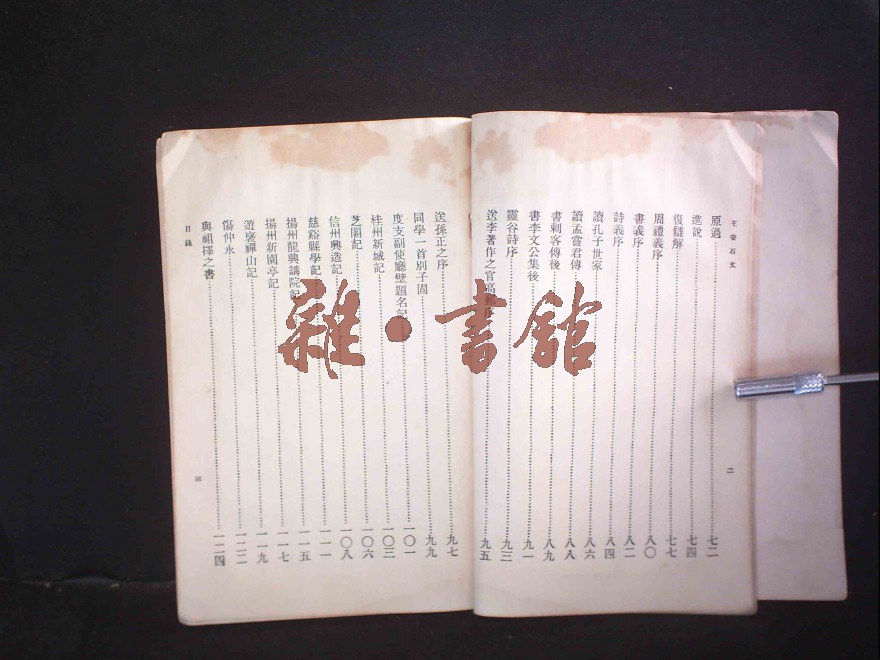 王安石文
原過……七二
進說……七四
復讎解……七七
周禮義序……八〇
書義序……八二
詩義序……八四
讀孔子世家……八六
讀孟嘗君傳……八八
書刺客傳後……八九
書李文公集後……九一
靈谷詩序……九三
送李著作之官高郵序……九五
二
送孫正之序……九七
同學一首別子固……九九
度支副使廳壁題名記……一〇一
桂州新城記……一〇三
芝閣記……一〇六
信州興造記……一〇八
慈谿縣學記……一一一
揚州龍興講院記……一一五
揚州新園亭記……一一七
遊褒禪山記……一一九
傷仲永……一二二
與祖擇之書……一二四
目錄
三
雜·書館